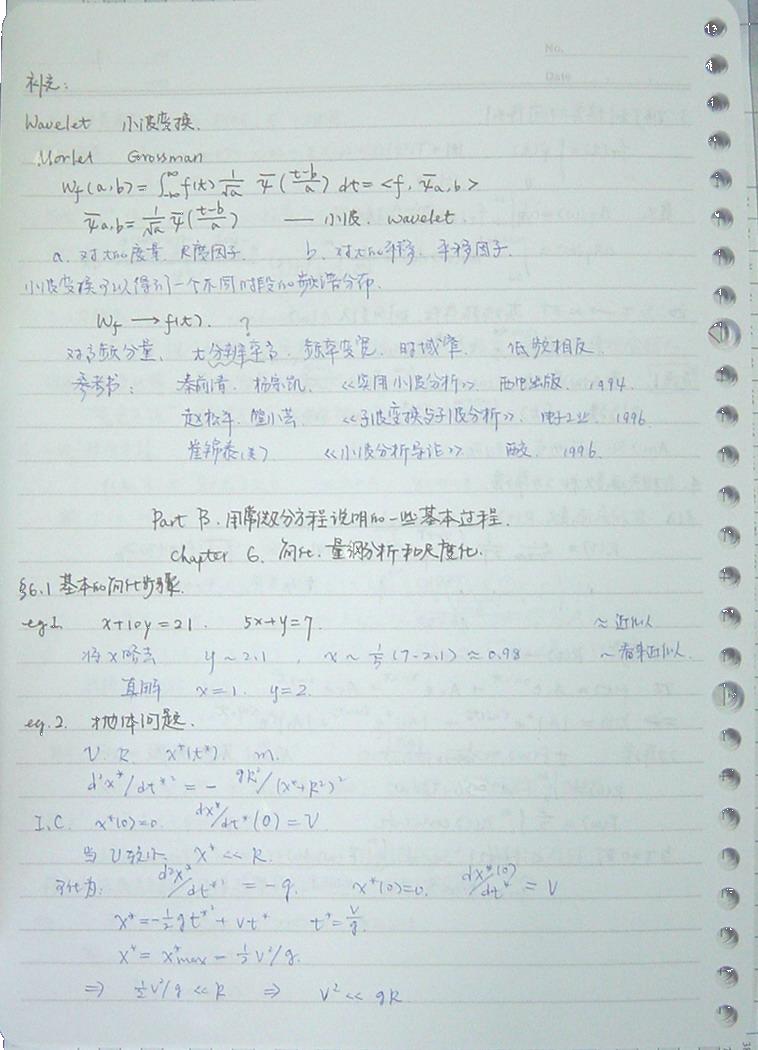 No.
Date
补充:
Wavelet 小波变换.
Morlet Grossman
W_f(a,b) = ∫_{-∞}^{∞} f(t) 1/√a ψ̄((t-b)/a) dt = <f, ψ̄a,b>
ψ̄a,b = 1/√a ψ̄((t-b)/a) —— 小波. wavelet
a. 对t的度量. 尺度因子. b. 对t的平移. 平移因子.
小波变换可以得到一个不同时段的频谱分布.
W_f → f(t). ?
对高频分量, 大分辨率高. 频率变宽. 时域窄. 低频相反.
参考书: 秦前清. 杨宗凯. 《实用小波分析》 西电出版. 1994.
赵松年. 熊小芸. 《子波变换与子波分析》. 电子工业. 1996.
崔锦泰(美) 《小波分析导论》 西交. 1996.
Part B. 用常微分方程说明的一些基本过程.
Chapter 6. 简化. 量纲分析和尺度化.
§6.1 基本的简化步骤.
eg1. x+10y=21. 5x+y=7. ≈ 近似
将x略去 y ~ 2.1, x ~ 1/5(7-2.1) ≈ 0.98 ~ 看来近似.
真解 x=1. y=2.
eg.2. 抛体问题.
V R x*(t*) m.
d²x*/dt*² = - gR²/(x*+R²)²
I.C. x*(0)=0. dx*/dt*(0) = V
当V较小. x* << R.
可化为: d²x²/dt*² = -g. x*(0)=0. dx*(0)/dt* = V
x* = -1/2 g t*² + Vt* t* = V/g.
x* = x*max - 1/2 V²/g.
⇒ 1/2 V²/g << R ⇒ V² << gR